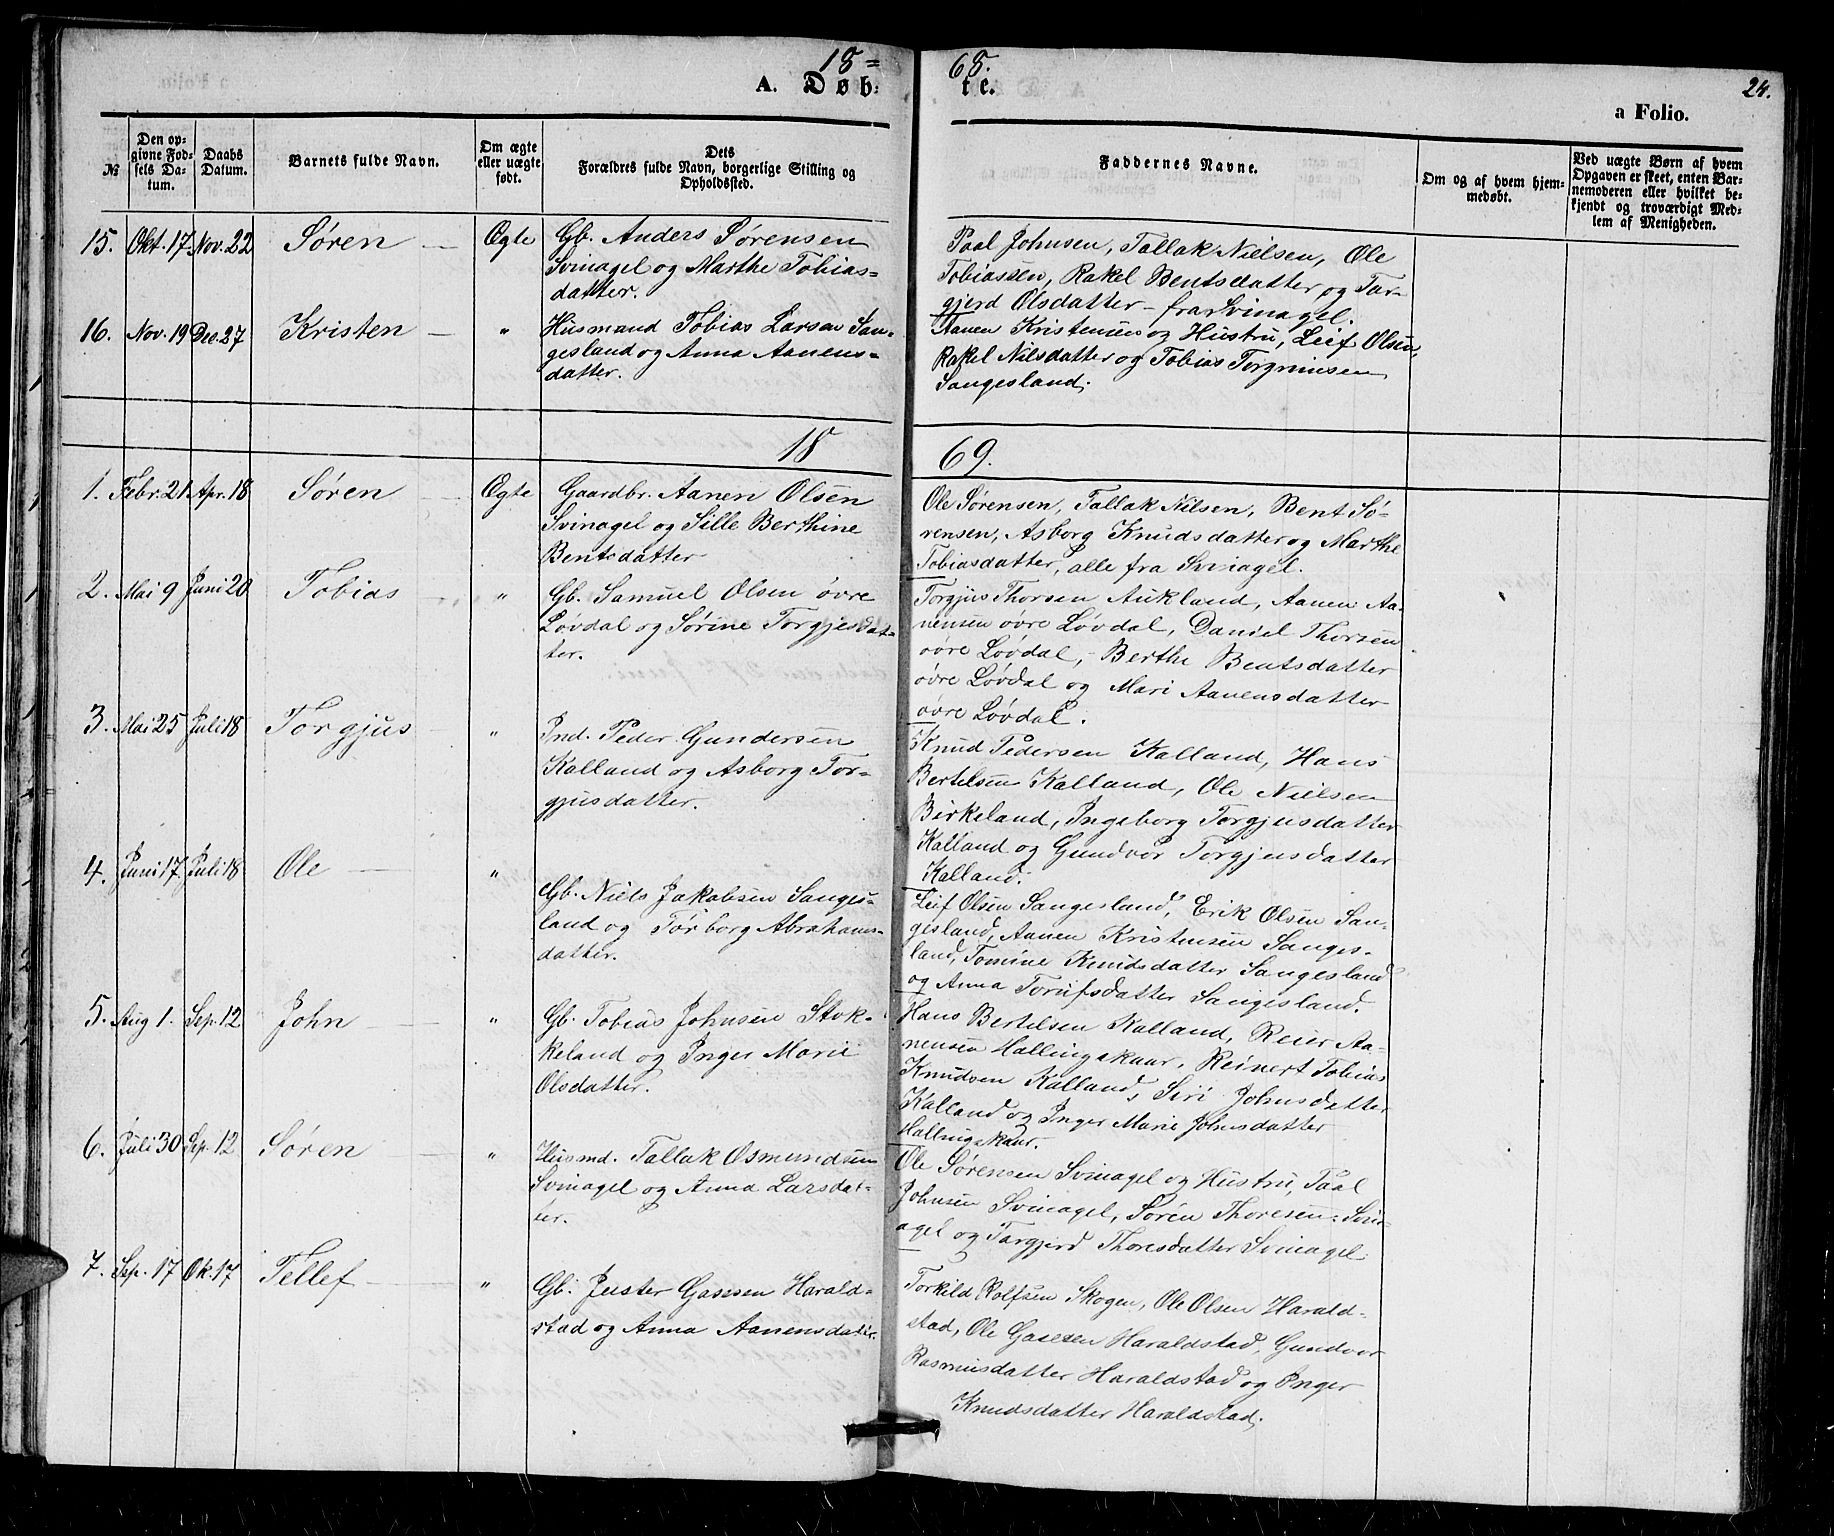 18=68.
A. Døb-te.
24.
a Folio.
№
Den op-
givne Fød-
sels Da-
tum.
Daabs
Datum.
Barnets fulde Navn.
Om ægte
eller uægte
født.
Dets
Forældres fulde Navn, borgerlige Stilling og
Opholdssted.
Faddernes Navne.
Om og af hvem hjem-
medøbt.
Ved uægte Børn af hvem
Opgaven er skeet, enten Bar-
nemoderen eller hvilket be-
kjendt og troværdigt Med-
lem af Menigheden.
15. Okt. 17 Nov. 22 Søren Ægte
Gb. Anders Sørensen
Svinagel og Marthe Tobias-
datter.
Paal Johnsen, Tallak Nielsen, Ole
Tobiassen, Rakel Bentsdatter og Tar-
gjerd Olsdatter – fra Svinagel.
16. Nov. 19 Dec. 27 Kristen "
Husmand Tobias Larsen San-
gesland og Anna Aanens-
datter.
Aanen Kristensen og Hustru, Leif Olsen,
Rakel Nilsdatter og Tobias Torgrimsen
Sangesland.
18 69.
1. Febr. 21. Apr. 18 Søren Ægte
Gaardbr. Aanen Olsen
Svinagel og Sille Berthine
Bentsdatter
Ole Sørensen, Tallak Nilsen, Bent Sø-
rensen, Asborg Knudsdatter og Marthe
Tobiasdatter, alle fra Svinagel.
2. Mai 9 Juni 20 Tobias "
Gb. Samuel Olsen øvre
Løvdal og Sørine Torgjesdat-
ter.
Torgjus Thorsen Aukland, Aanen Aa-
nensen øvre Løvdal, Daniel Thorsen
øvre Løvdal, Berthe Bentsdatter
øvre Løvdal og Mari Aanensdatter
øvre Løvdal.
3. Mai 25 Juli 18 Torgjus "
Ind. Peder Gundersen
Kalland og Asborg Tor-
gjusdatter.
Knud Pedersen Kalland, Hans
Bertelsen Kalland, Ole Nielsen
Birkeland, Ingeborg Torgjusdatter
Kalland og Gundvor Torgjusdatter
Kalland.
4. Juni 17 Juli 18 Ole "
Gb. Niels Jakobsen Sanges-
land og Torborg Abrahams-
datter.
Leif Olsen Sangesland, Erik Olsen San-
gesland, Aanen Kristensen Sanges-
land, Tomine Knudsdatter Sangesland
og Anna Torufsdatter Sangesland.
5. Aug 1. Sep. 12 John "
Gb. Tobias Johnsen Stok-
keland og Inger Marie
Olsdatter.
Hans Bertelsen Kalland, Reier Aa-
nensen Hallingskaar, Reinert Tobias
Knudsen Kalland, Siri Johnsdatter
Kalland og Inger Marie Johnsdatter
Hallingskaar.
6. Juli 30 Sep. 12 Søren "
Husmd. Tallak Osmundsen
Svinagel og Anna Larsdat-
ter.
Ole Sørensen Svinagel og Hustru, Paal
Johnsen Svinagel, Søren Thoresen Svin-
agel og Targjerd Thoresdatter Svinagel
7. Sep. 17 Ok. 17 Tellef "
Gb. Juster Gasesen Harald-
stad og Anna Aanensdatter.
Torkild Rolfsen Skogen, Ole Olsen Harald-
stad, Ole Gasesen Haraldstad, Gundvor
Rasmusdatter Haraldstad og Inger
Knudsdatter Haraldstad.